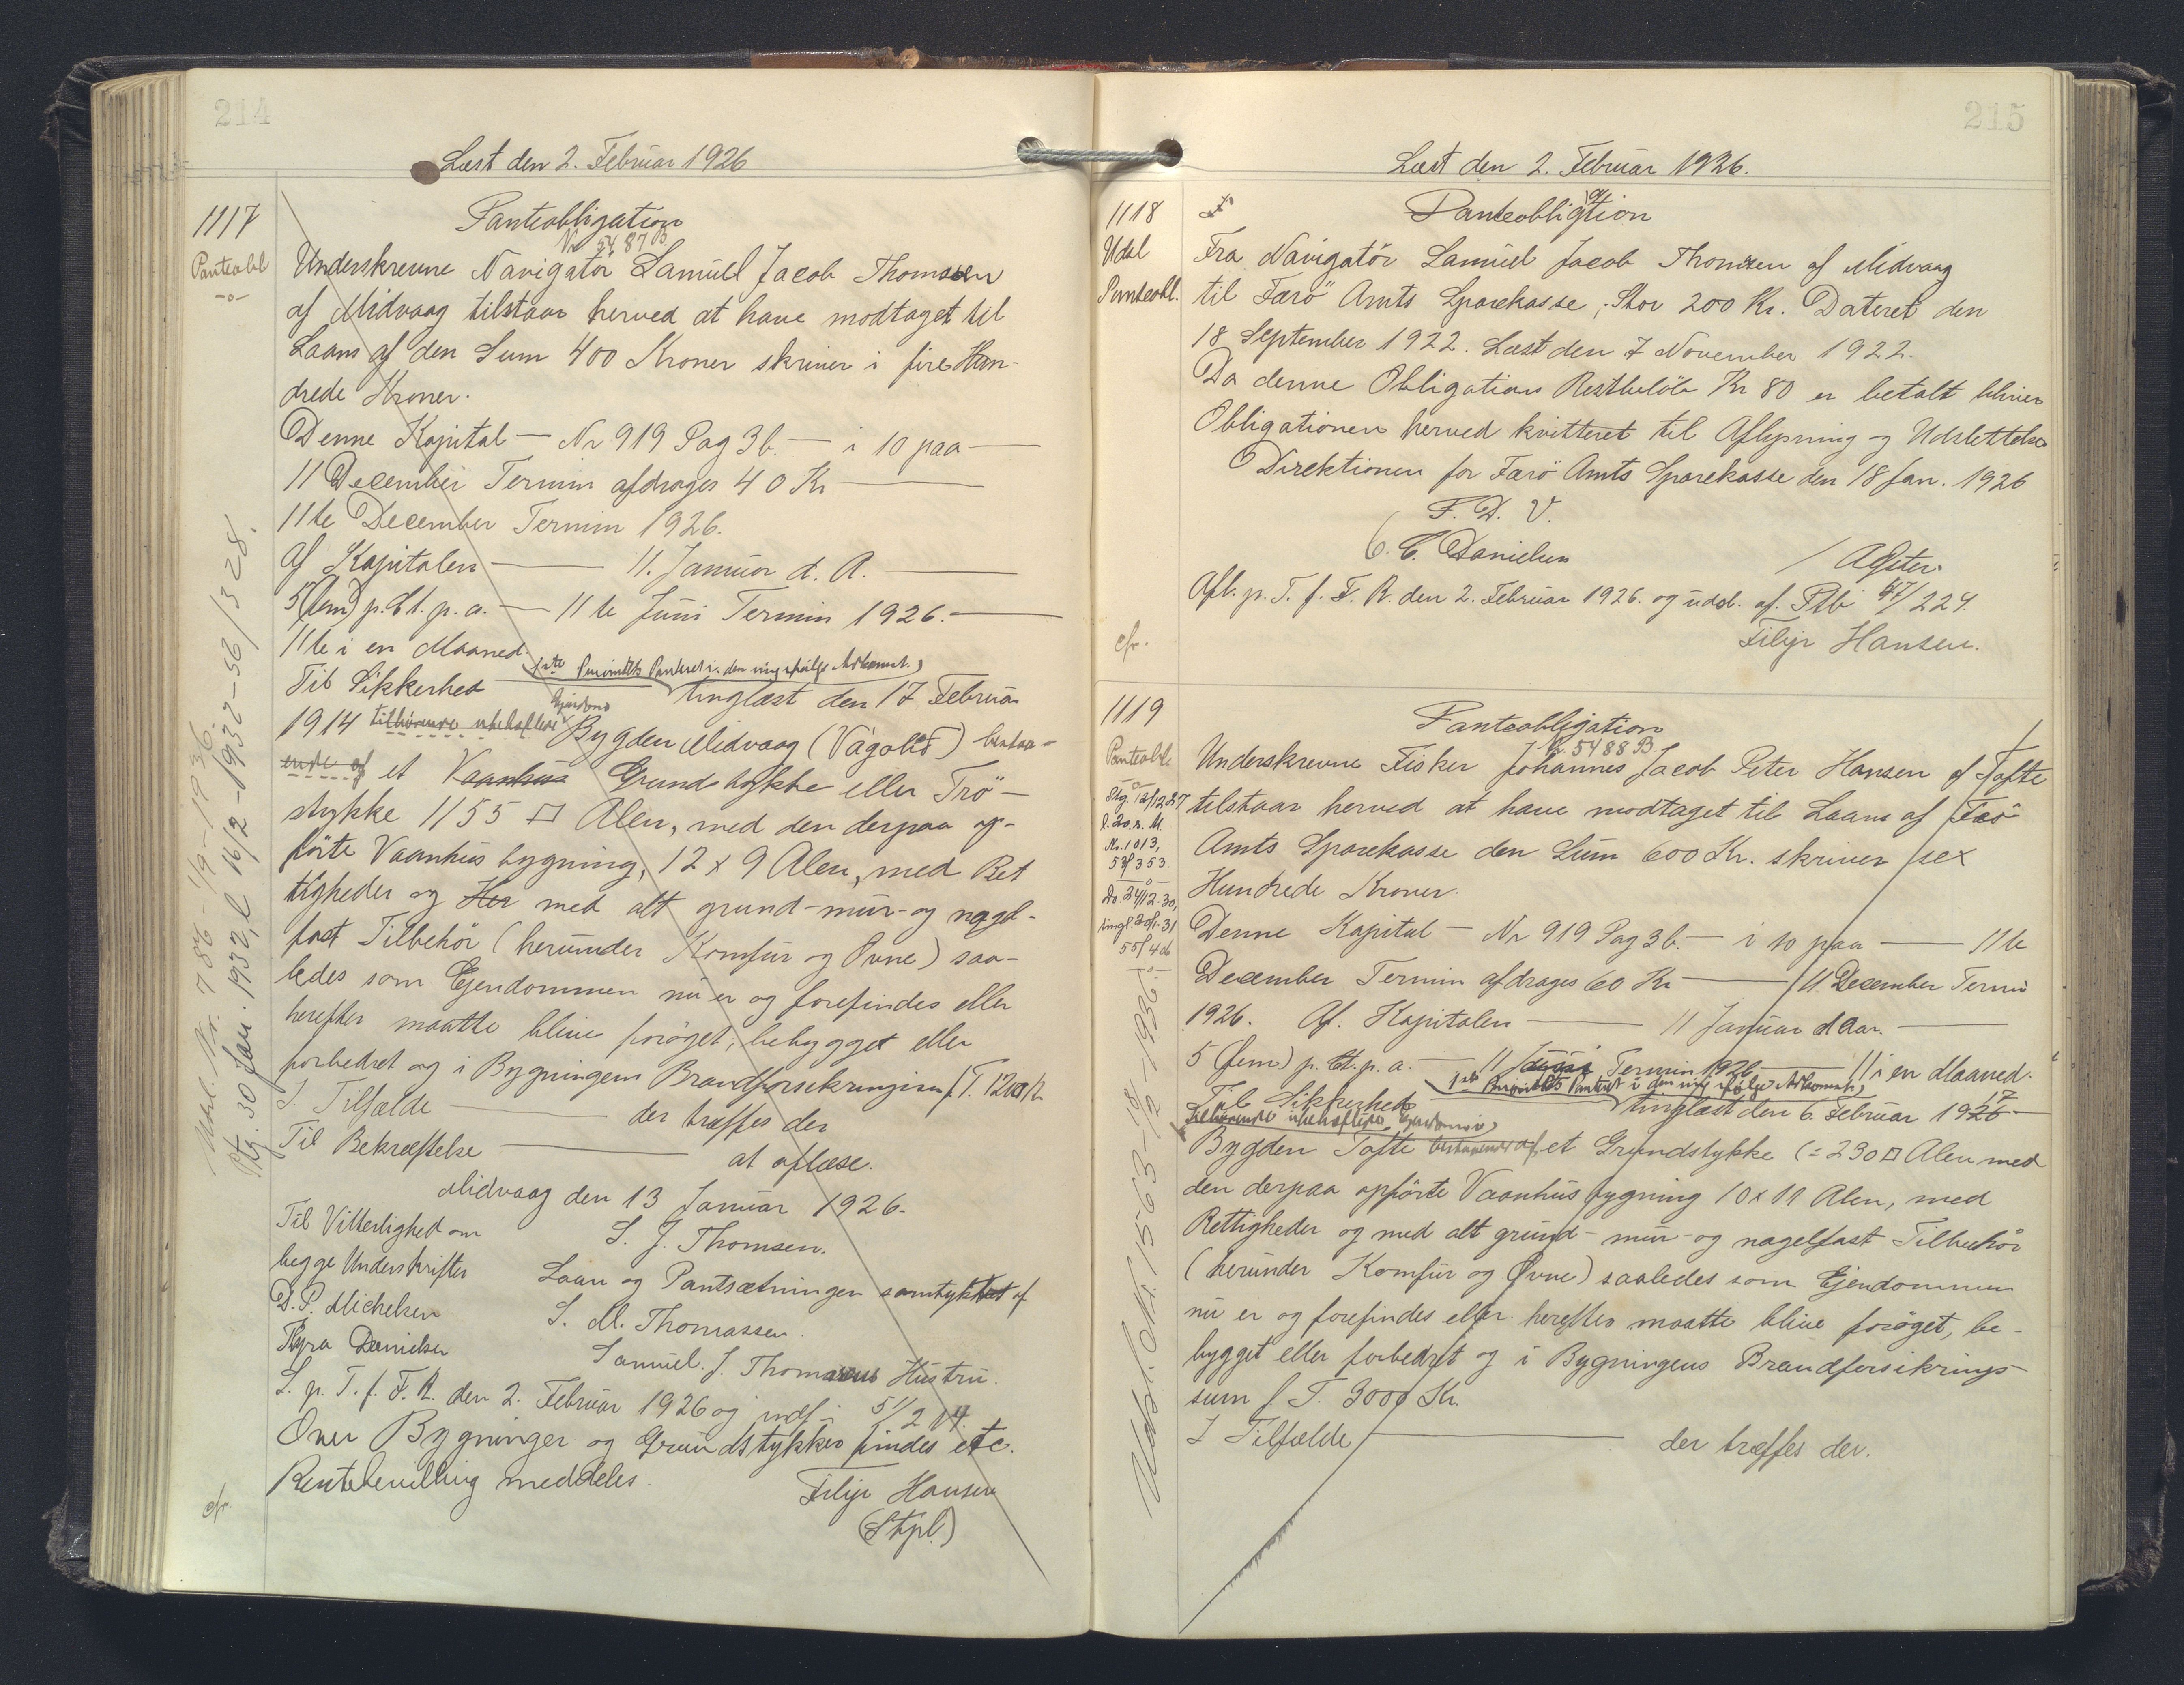 214
Læst den 2. Februar 1926
1117
Panteobl
-o-
Panteobligation
Nr 5487 B
Underskrevne Navigatör Samuel Jacob Thomsen
af Midvaag tilstaar herved at have modtaget til
Laans af den Sum 400 Kroner skriver i fire Hun-
drede Kroner.
Denne Kapital — Nr 919 Pag 3b. — i 10 paa —
11 December Termin afdrages 40 Kr —
11te December Termin 1926.
af Kapitalen — 11. Januar d. A. —
5 (fem) p. Ct. p. a. — 11te Juni Termin 1926. —
11te i en Maaned.
1ste Prioritets Panteret i den mig ifølge Adkomst,
Til Sikkerhed tinglæst den 17 Februar
Ejendom
1914 tilhørende ubehæftede Bygden Midvaag (Vágalið) bestaa-
ende af et Vaanhus Grundstykke eller Trö-
stykke 1155 □ Alen, med den derpaa op-
förte Vaanhus bygning, 12 x 9 Alen, med Ret
tigheder og Her med alt grund-mur-og nagel-
fast Tilbehör (herunder Komfur og Ovne) saa-
ledes som Ejendommen nu er og forefindes eller
herefter maatte blive foröget, bebygget eller
forbedret og i Bygningens Brandforsikringssum f. T. 1200 Kr
I Tilfælde — der træffes der
Til Bekræftelse — at aflæse.
Midvaag den 13 Januar 1926.
Til Vitterlighed om S. J. Thomsen.
begge Underskrifter Laan og Pantsætningen samtykket af
D. P. Michelsen S. M. Thomassen
Thyra Danielsen Samuel. J. Thomsens Hustru.
L. p. T. f. F. R. den 2. Februar 1926 og indf i 51/214.
Over Bygninger og Grundstykker findes etc.
Rentebevilling meddeles. Filip Hansen
(Stpl.)
cfr.
Udsl. Nr. 786 - 1/9 - 1936.
Ptg. 30 Jan. 1932, l 16/2 - 1932 - 56/328.
215
Læst den 2. Februar 1926.
1118
Udsl
Panteobl.
F
Panteobligation
Fra Navigatör Samuel Jacob Thomsen af Midvaag
til Færö Amts Sparekasse, Stor 200 Kr. Dateret den
18 September 1922. Læst den 7 November 1922.
Da denne Obligations Restbelöb Kr 80 er betalt bliver
Obligationen herved kvitteret til Aflysning og Udslettelse
Direktionen for Færö Amts Sparekasse den 18 Jan. 1926
F. D. V.
C. C. Danielsen
Afl. p. T. f. F. R. den 2. Februar 1926. og udsl. af. Ptb 47/224.
cfr. Filip Hansen.
1119
Panteobl.
-o-
Panteobligation
Nr. 5488 B.
Underskrevne Fisker Johannes Jacob Peter Hansen af Tofte
tilstaar herved at have modtaget til Laans af Færö
Amts Sparekasse den Sum 600 Kr. skriver sex
Hundrede Kroner.
Nr. 1013,
53/353.
-o-
Do. 24/12.30,
tingl. 20/1-31
55/46
-o-
Denne Kapital — Nr 919 Pag 3b. — i 10 paa — 11te
December Termin afdrages 60 Kr — 11. December Termin
1926. Af. Kapitalen — 11 Januar d Aar. —
5 (fem) p. Ct. p. a. — 11 Termin 1926 — 11 i en Maaned.
1ste Prioritets Panteret i den mig ifølge Adkomst,
Til Sikkerhed tinglæst den 6. Februar 1926 17
tilhørende ubehæftede Ejendom i
Bygden Tofte bestaaende af et Grundstykke (= 230 □ Alen med
den derpaa opförte Vaanhus bygning 10 x 11 Alen, med
Rettigheder og med alt grund-mur-og nagelfast Tilbehör
(herunder Komfur og Ovne) saaledes som Ejendommen
nu er og forefindes eller herefter maatte blive foröget, be-
bygget eller forbedret og i Bygningens Brandforsikrings-
sum f T. 3000 Kr.
I Tilfælde — der træffes der.